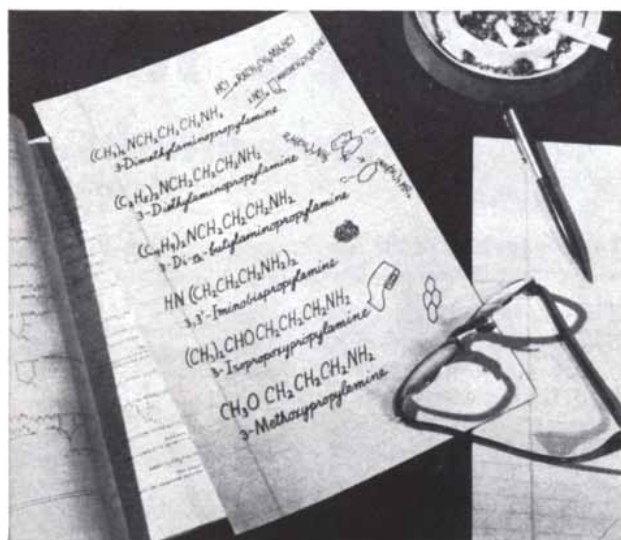 (CH₃)₂NCH₂CH₂CH₂NH₂
3-Dimethylaminopropylamine
(C₂H₅)₂NCH₂CH₂CH₂NH₂
3-Diethylaminopropylamine
(C₄H₉)₂NCH₂CH₂CH₂NH₂
3-Di-n-butylaminopropylamine
HN(CH₂CH₂CH₂NH₂)₂
3,3'-Iminobispropylamine
(CH₃)₂CHOCH₂CH₂CH₂NH₂
3-Isopropoxypropylamine
CH₃OCH₂CH₂CH₂NH₂
3-Methoxypropylamine